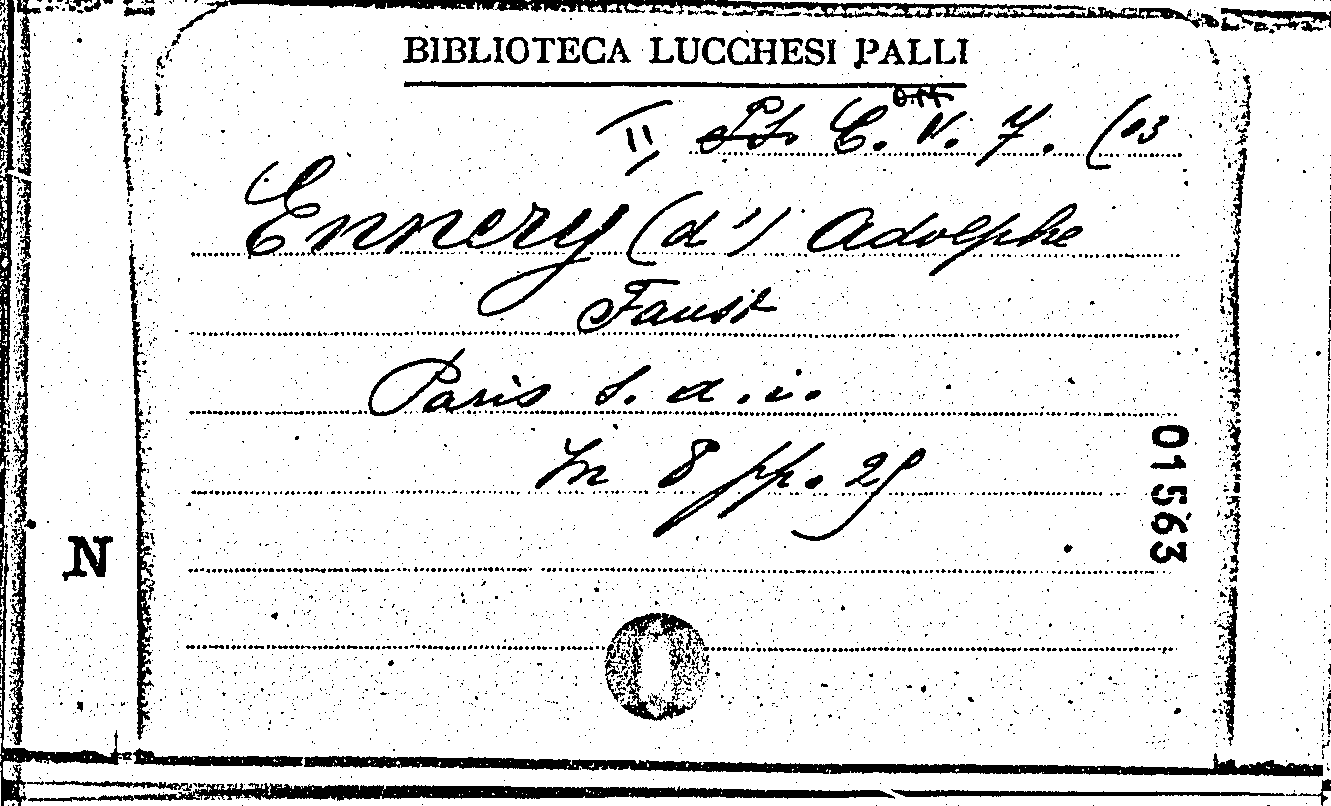 BIBLIOTECA LUCCHESI PALLI
II C. V. 7. (03
Ennery (d') Adolphe
Faust
Paris s. d. i.
In 8 pp. 29
01563
N